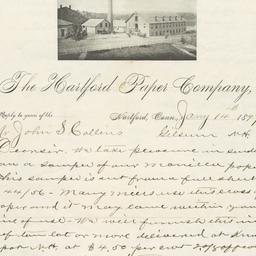 The Hartford Paper Company,
Reply to yours of the
Hartford, Conn., Jany 14th 189
Mr John S Collins
Gilsum N.H.
Dear Sir. We take pleasure in
you a sample of our manilla
This sample is cut from a full sheet
44/56 - Many mills use this
paper and it may come within your
line of use. We will furnish this in
of ton lot or more delivered at
N.H. at $4.50 per cwt